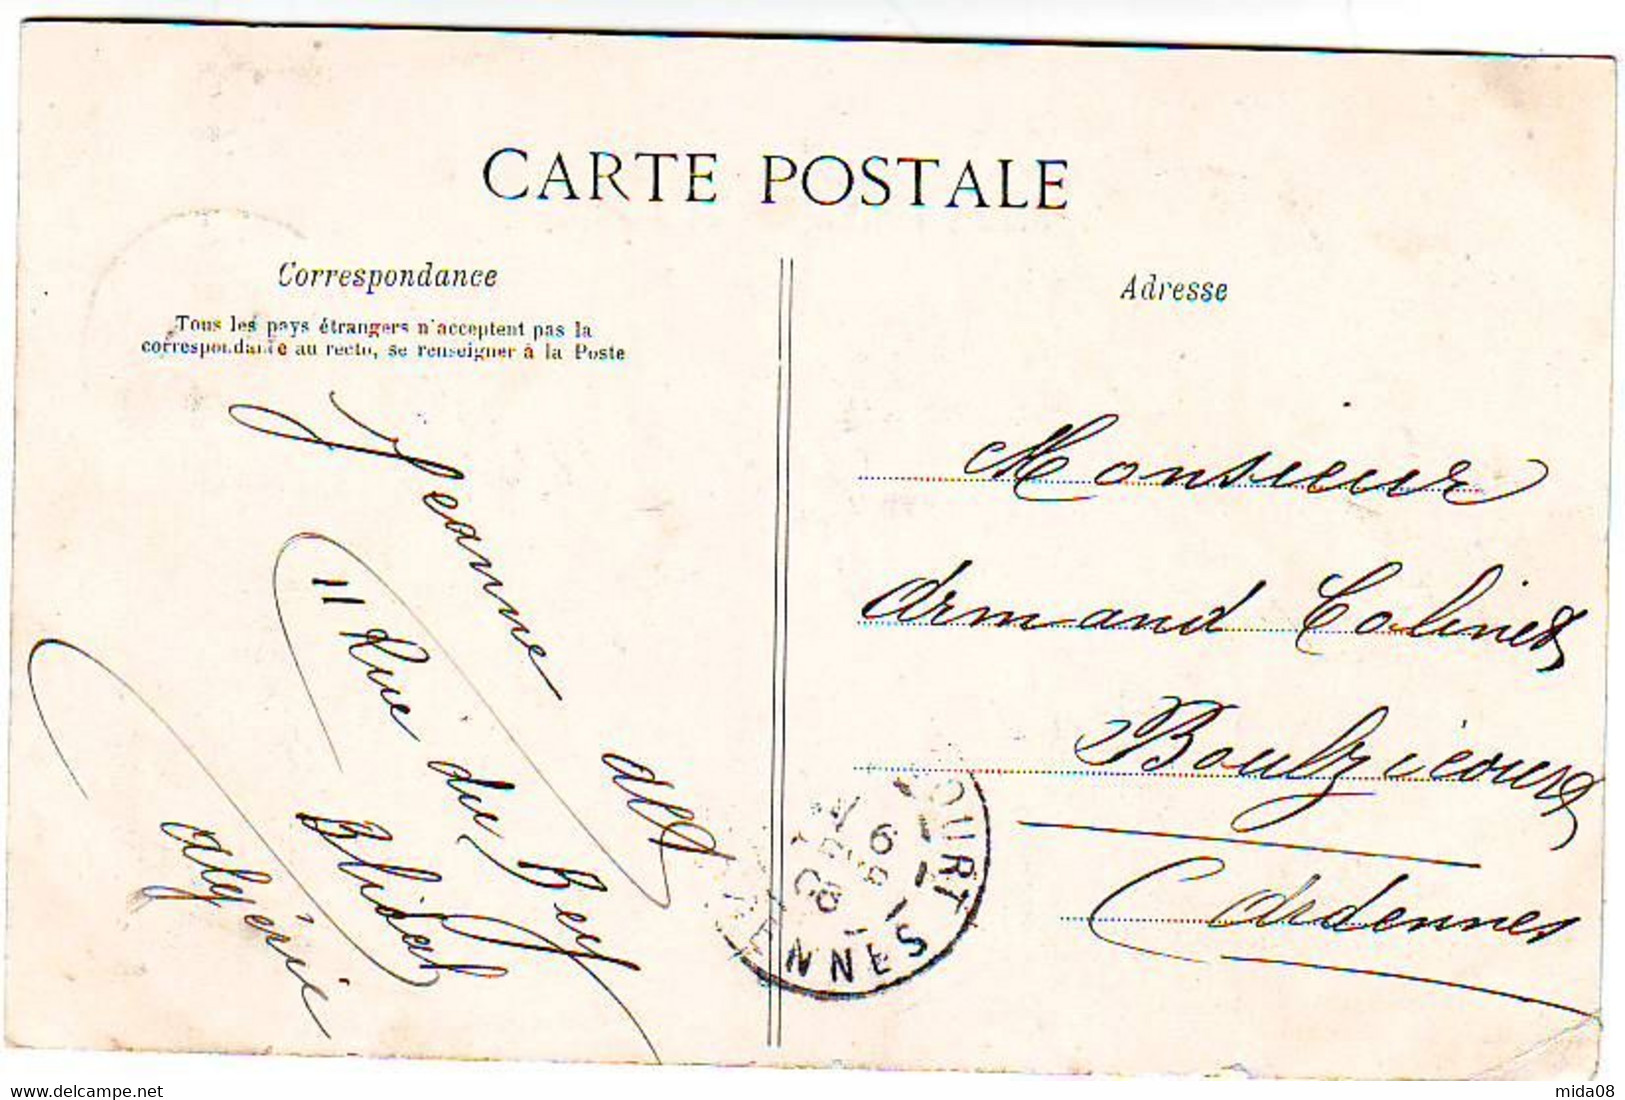 CARTE POSTALE
Correspondance
Tous les pays étrangers n'acceptent pas la
correspondance au recto, se renseigner à la Poste
Jeanne
11 Rue du Bey
Blidah
Algérie
Adresse
Monsieur
Armand Colinet
Boulzicourt
Ardennes
OURT
ENNES
www.delcampe.net
mida08